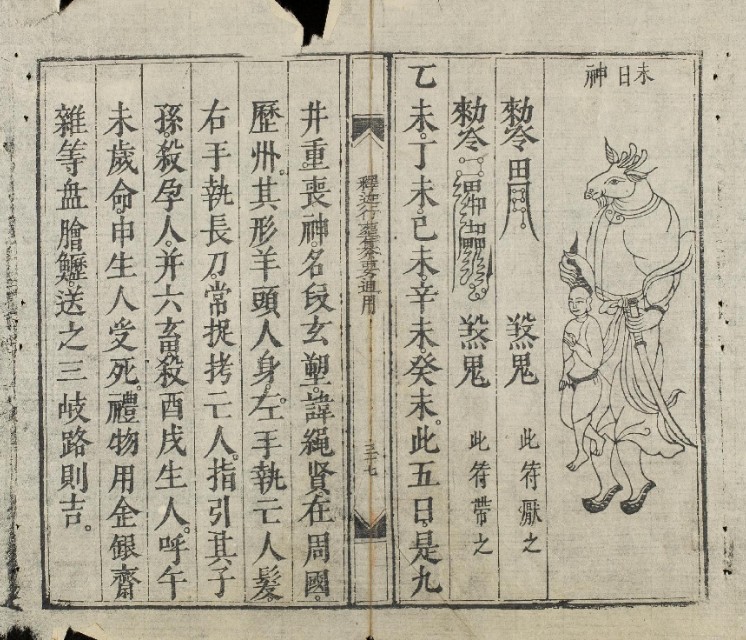 未日神
勑令 煞鬼 此符厭之
勑令 煞鬼 此符帶之
乙未。丁未。己未。辛未。癸未。此五日。是九
釋迦行 通用
三十七
井重喪神。名段玄塑。諱繩賢。在周國。
歷州。其形羊頭人身。左手執亡人髮。
右手執長刀。常捉拷亡人。指引其子
孫。殺孕人。并六畜。殺酉戌生人。呼午
未歲命。申生人受死。禮物用金銀齋
雜等盐膾。送之三岐路則吉。